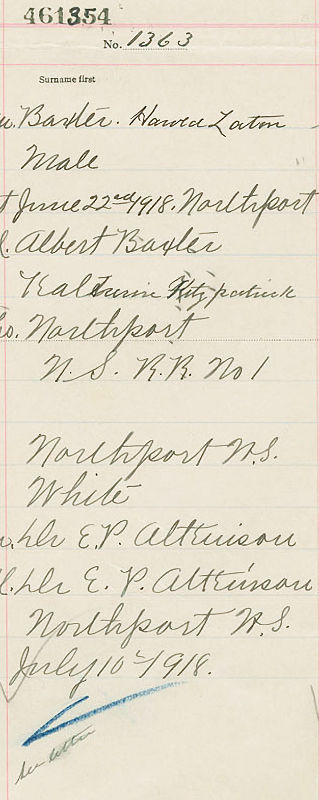 461354
No. 1363
Surname first
Baxter. Harold Laton
Male
June 22nd 1918. Northport
Albert Baxter
Katherine Fitzpatrick
Northport
N.S. R.R. No 1
Northport N.S.
White
Dr E.P. Atkinson
Dr E. P. Atkinson
Northport N.S.
July 10th 1918.
see letter